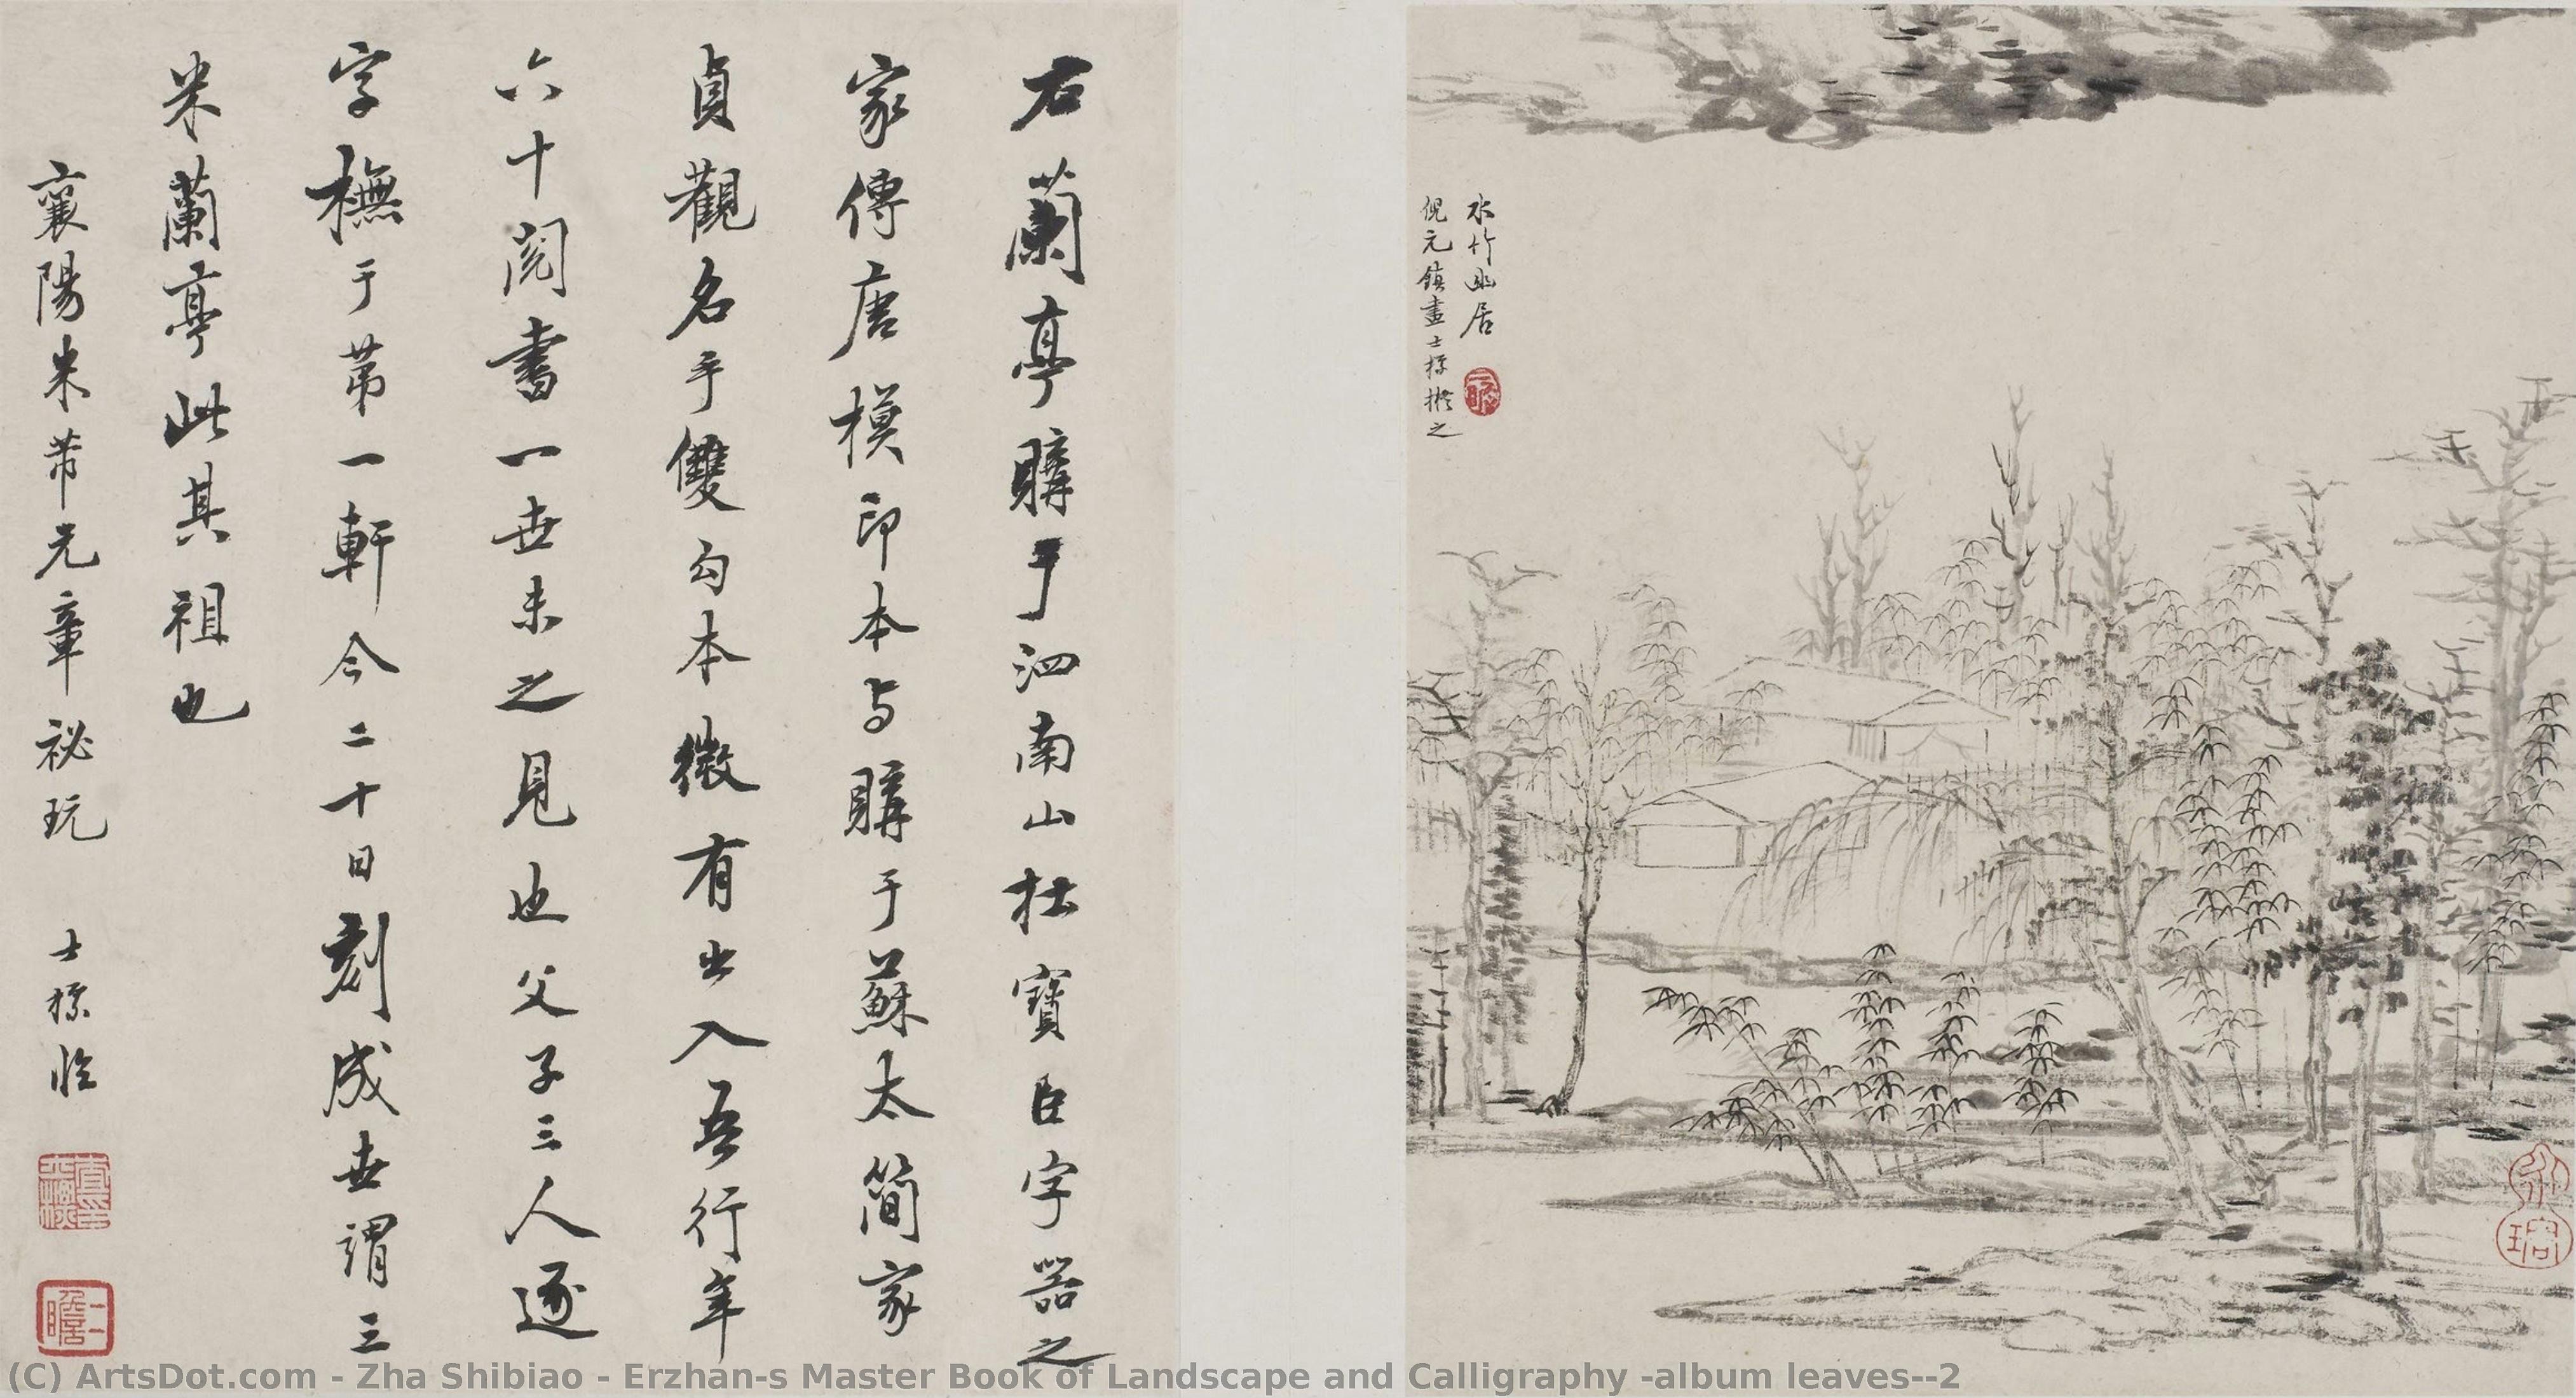 水竹幽居
倪元鎮畫士標撫之
右蘭亭購于泗南山杜寶臣字器之
家傳唐模印本与購于蘇太簡家
貞觀名手雙勾本微有出入吾行年
六十閱書一世未之見也父子三人逐
字橅于苐一軒今二十日刻成世謂三
米蘭亭此其祖也
襄陽米芾元章祕玩 士標臨
二瞻
(C) ArtsDot.com - Zha Shibiao - Erzhan-s Master Book of Landscape and Calligraphy -album leaves--2